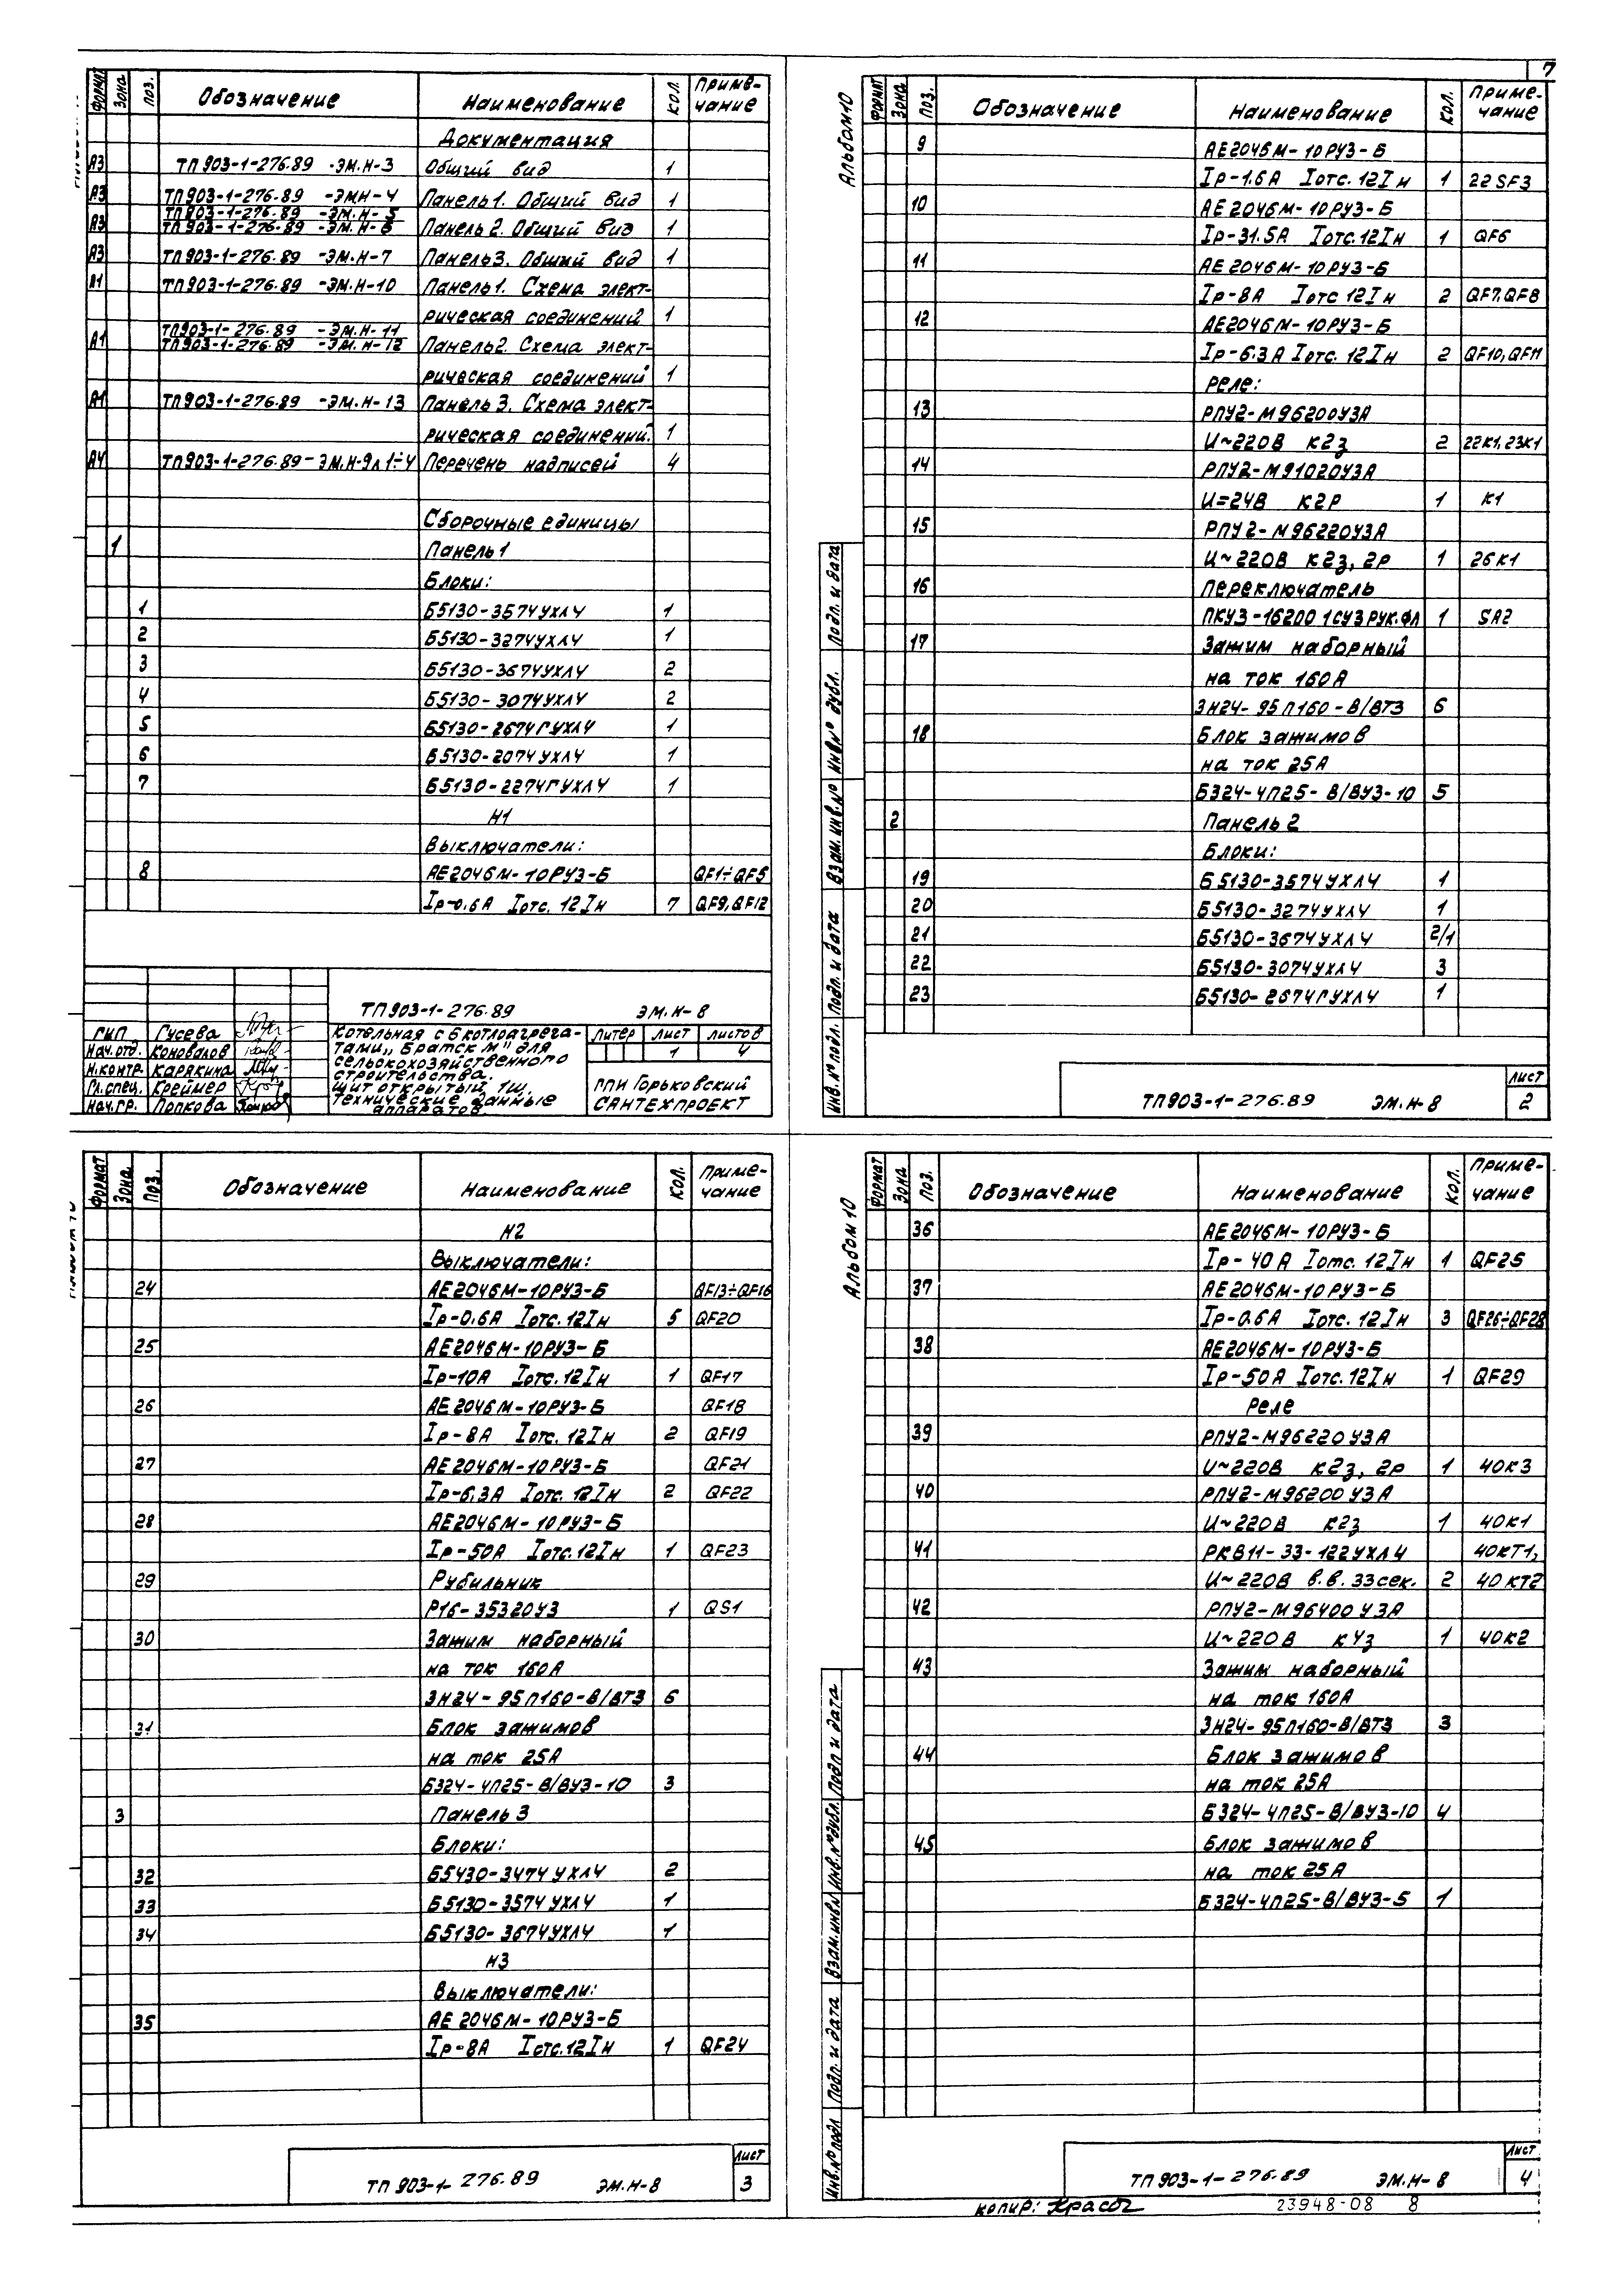 7
Формат Зона Поз. Обозначение Наименование Кол. Приме-
чание
Документация
А3 ТП 903-1-276.89 -ЭМ.Н-3 Общий вид 1
А3 ТП903-1-276.89 -ЭМН-4 Панель 1. Общий вид 1
ТП903-1-276.89 -ЭМ.Н-5
А3 ТП903-1-276.89 -ЭМ.Н-6 Панель 2. Общий вид 1
А3 ТП903-1-276.89 -ЭМ.Н-7 Панель 3. Общий вид 1
А1 ТП903-1-276.89 -ЭМ.Н-10 Панель 1. Схема элект-
рическая соединений 1
ТП903-1-276.89 -ЭМ.Н-11
А1 ТП903-1-276.89 -ЭМ.Н-12 Панель 2. Схема элект-
рическая соединений 1
А1 ТП903-1-276.89 -ЭМ.Н-13 Панель 3. Схема элект-
рическая соединений. 1
А4 ТП903-1-276.89-ЭМ.Н-9л 1÷4 Перечень надписей 4
Сборочные единицы
1 Панель 1
Блоки:
1 Б5130-3574УХЛ4 1
2 Б5130-3274УХЛ4 1
3 Б5130-3674УХЛ4 2
4 Б5130-3074УХЛ4 2
5 Б5130-2674ГУХЛ4 1
6 Б5130-2074УХЛ4 1
7 Б5130-2274ГУХЛ4 1
Н1
Выключатели:
8 АЕ2046М-10РУЗ-Б QF1÷QF5
Iр-0.6А Iотс. 12Iн 7 QF9, QF12
ТП903-1-276.89 ЭМ.Н-8
ГИП Гусева
Нач.отд. Коновалов
Н.контр. Карякина
Гл.спец. Креймер
Нач.гр. Попкова
Котельная с 6 котлоагрега-
тами „Братск М" для
сельскохозяйственного
строительства.
Щит открытый 1Щ.
Технические данные
аппаратов
Литер Лист Листов
1 4
ГПИ Горьковский
САНТЕХПРОЕКТ
Альбом 10
Формат Зона Поз. Обозначение Наименование Кол. Приме-
чание
9 АЕ2046М-10РУЗ-Б
Iр-1.6А Iотс. 12Iн 1 22SF3
10 АЕ2046М-10РУЗ-Б
Iр-31.5А Iотс. 12Iн 1 QF6
11 АЕ2046М-10РУЗ-Б
Iр-8А Iотс 12Iн 2 QF7, QF8
12 АЕ2046М-10РУЗ-Б
Iр-6.3А Iотс. 12Iн 2 QF10, QF11
Реле:
13 РПУ2-М96200УЗА
U~220В к2з 2 22К1, 23К1
14 РПУ2-М91020УЗА
U=24В к2р 1 К1
15 РПУ2-М96220УЗА
U~220В к2з, 2р 1 26К1
16 Переключатель
ПКУЗ-16200 1СУЗ РУК.ФЛ 1 SA2
17 Зажим наборный
на ток 160А
ЗН24-95П160-В/ВТЗ 6
18 Блок зажимов
на ток 25А
БЗ24-4П25-В/ВУЗ-10 5
2 Панель 2
Блоки:
19 Б5130-3574УХЛ4 1
20 Б5130-3274УХЛ4 1
21 Б5130-3674УХЛ4 2/1
22 Б5130-3074УХЛ4 3
23 Б5130-2674ГУХЛ4 1
Инв.№подл. Подп. и дата Взам.инв.№ Инв.№ дубл. Подп. и дата
ТП903-1-276.89 ЭМ.Н-8 Лист
2
Формат Зона Поз. Обозначение Наименование Кол. Приме-
чание
Н2
Выключатели:
24 АЕ2046М-10РУЗ-Б QF13÷QF16
Iр-0.6А Iотс. 12Iн 5 QF20
25 АЕ2046М-10РУЗ-Б
Iр-10А Iотс. 12Iн 1 QF17
26 АЕ2046М-10РУЗ-Б QF18
Iр-8А Iотс. 12Iн 2 QF19
27 АЕ2046М-10РУЗ-Б QF21
Iр-6.3А Iотс. 12Iн 2 QF22
28 АЕ2046М-10РУЗ-Б
Iр-50А Iотс. 12Iн 1 QF23
29 Рубильник
Р16-35320УЗ 1 QS1
30 Зажим наборный
на ток 160А
ЗН24-95П160-В/ВТЗ 6
31 Блок зажимов
на ток 25А
БЗ24-4П25-В/ВУЗ-10 3
3 Панель 3
Блоки:
32 Б5430-3474УХЛ4 2
33 Б5130-3574УХЛ4 1
34 Б5130-3674УХЛ4 1
Н3
Выключатели:
35 АЕ2046М-10РУЗ-Б
Iр-8А Iотс. 12Iн 1 QF24
ТП 903-1-276.89 ЭМ.Н-8 Лист
3
Альбом 10
Формат Зона Поз. Обозначение Наименование Кол. Приме-
чание
36 АЕ2046М-10РУЗ-Б
Iр-40А Iотс. 12Iн 1 QF25
37 АЕ2046М-10РУЗ-Б
Iр-0.6А Iотс. 12Iн 3 QF26÷QF28
38 АЕ2046М-10РУЗ-Б
Iр-50А Iотс. 12Iн 1 QF29
Реле
39 РПУ2-М96220УЗА
U~220В к2з, 2р 1 40К3
40 РПУ2-М96200УЗА
U~220В к2з 1 40К1
41 РКВ11-33-122УХЛ4 40КТ1,
U~220В в.в. 33сек. 2 40КТ2
42 РПУ2-М96400УЗА
U~220В к4з 1 40К2
43 Зажим наборный
на ток 160А
ЗН24-95П160-В/ВТЗ 3
44 Блок зажимов
на ток 25А
БЗ24-4П25-В/ВУЗ-10 4
45 Блок зажимов
на ток 25А
БЗ24-4П25-В/ВУЗ-5 1
Инв.№подл Подп. и дата Взам.инв.№ Инв.№дубл. Подп и дата
ТП 903-1-276.89 ЭМ.Н-8 Лист
4
копир: 23948-08 8